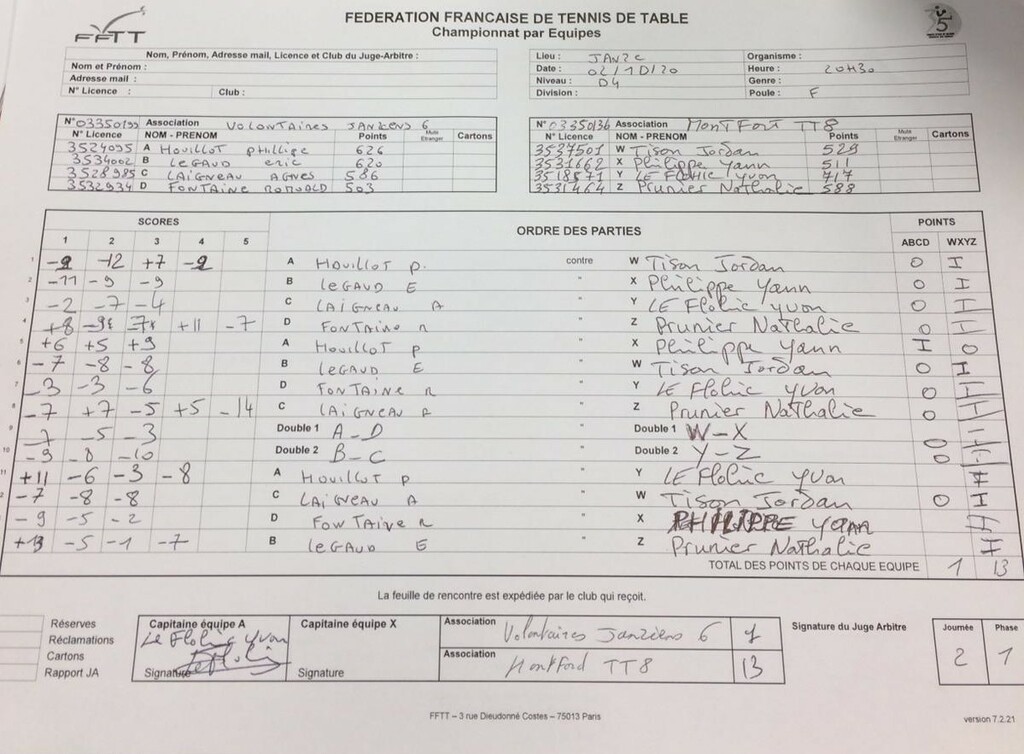 FFTT
FEDERATION FRANCAISE DE TENNIS DE TABLE
Championnat par Equipes
Nom, Prénom, Adresse mail, Licence et Club du Juge-Arbitre :
Nom et Prénom :
Adresse mail :
N° Licence : Club :
Lieu : JANZC Organisme :
Date : 02/10/20 Heure : 20H30
Niveau : D4 Genre :
Division : Poule : F
N° 03350199 Association VOLONTAIRES JANZIENS 6
N° Licence NOM - PRENOM Points Cartons
3524095 A HOUILLOT philippe 626
3534002 B LEGAUD eric 620
3528985 C LAIGNEAU AGNES 586
3532934 D FONTAINE ROMUALD 503
N° 03350136 Association MONTFORT TT8
N° Licence NOM - PRENOM Points Cartons
3537501 W Tison Jordan 529
3531662 X Philippe Yann 511
3518571 Y LE Flohic Yvon 717
3531464 Z Prunier Nathalie 588
SCORES ORDRE DES PARTIES POINTS
1 2 3 4 5 ABCD WXYZ
1 -9 -12 +7 -9 A HOUILLOT P. contre W Tison Jordan 0 I
2 -11 -9 -9 B LEGAUD E " X Philippe Yann 0 I
3 -2 -7 -4 C LAIGNEAU A " Y LE Flohic Yvon 0 I
4 +8 +11 -7 D FONTAINE R " Z Prunier Nathalie 0 I
5 +6 +5 +9 A HOUILLOT P " X Philippe Yann I 0
6 -7 -8 -8 B LEGAUD E " W Tison Jordan 0 I
7 -3 -3 -6 D FONTAINE R " Y LE Flohic Yvon 0 I
8 -7 +7 -5 +5 -14 C LAIGNEAU A " Z Prunier Nathalie 0 I
9 -7 -5 -3 Double 1 A-D " Double 1 W-X 0 I
10 -9 -8 -10 Double 2 B-C " Double 2 Y-Z 0 I
11 +11 -6 -3 -8 A HOUILLOT P " Y LE Flohic Yvon I
-7 -8 -8 C LAIGNEAU A " W Tison Jordan 0 I
-9 -5 -2 D FONTAINE R " X PHILIPPE YANN I
+13 -5 -1 -7 B LEGAUD E " Z Prunier Nathalie I
TOTAL DES POINTS DE CHAQUE EQUIPE 1 13
La feuille de rencontre est expédiée par le club qui reçoit.
Réserves
Réclamations
Cartons
Rapport JA
Capitaine équipe A
Le Flohic Yvon
Signature
Capitaine équipe X
Signature
Association Volontaires Janziens 6 1
Association Montford TT8 13
Signature du Juge Arbitre
Journée Phase
2 1
FFTT – 3 rue Dieudonné Costes – 75013 Paris
version 7.2.21